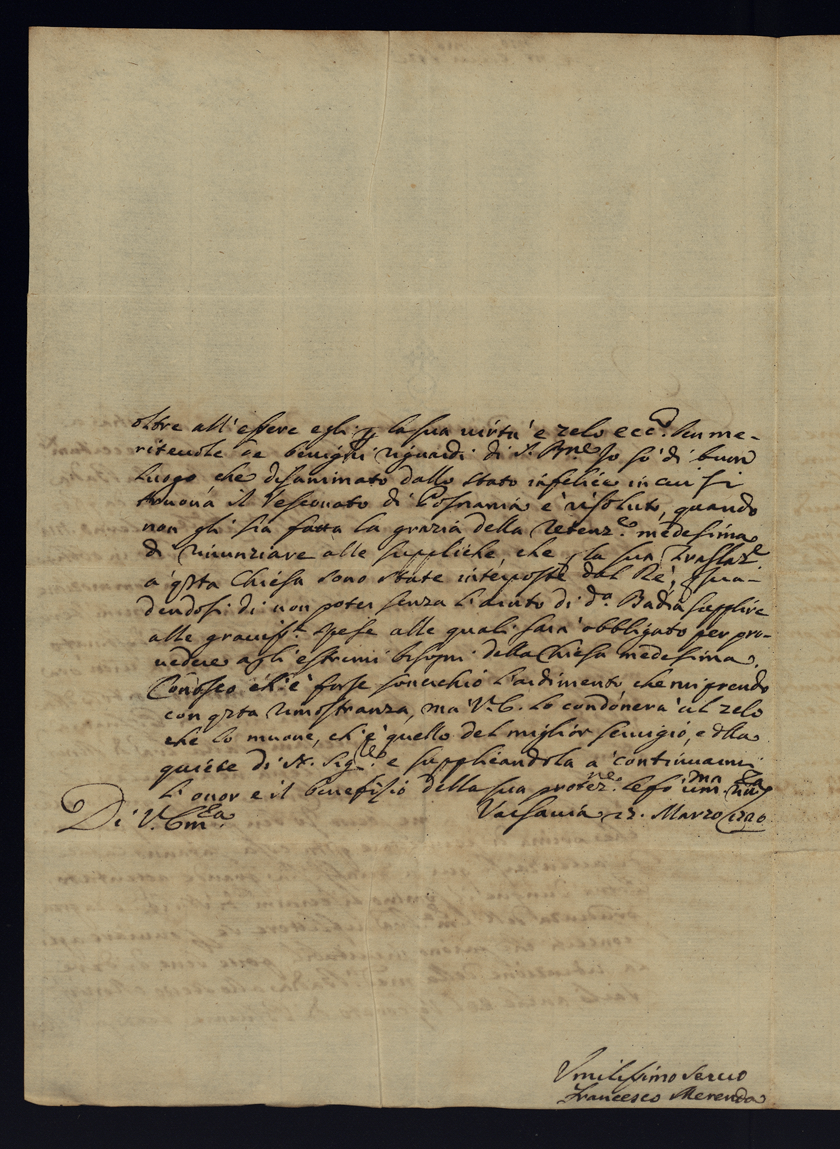 oltre all'essere egli p la sua uirtù e zelo ecc.o ben me-
riteuole de benigni riguardi di S. Bne Io sò di buon
luogo che disanimato dallo stato infelice in cui si
truoua il Vescouato di Posnania è risoluto, quando
non gli sia fatta la grazia della retenz.e medesima
di rinunziare alle suppliche che p la sua traslaz.e
a qsta Chiesa sono state interposte dal Rè, psua-
dendosi di non poter senza l'aiuto di d.a Badia supplire
alle grauiss.e spese alle quali sarà obbligato per pro-
uedere agli estremi bisogni della Chiesa medesima.
Conosco ch'è forse souerchio l'ardimento che mi prendo
con qsta rimostranza, ma V.E. lo condonerà al zelo
che lo muoue, ch'è quello del miglior seruigio, e della
quiete di N. Sig.re e supplicandola à continuarmi
l'onor e il benefizio della sua protez.ne le fò um.ma
Di V. Em.za Varsauia 27. Marzo 1720
Vmilissimo Seruo
Francesco Merenda